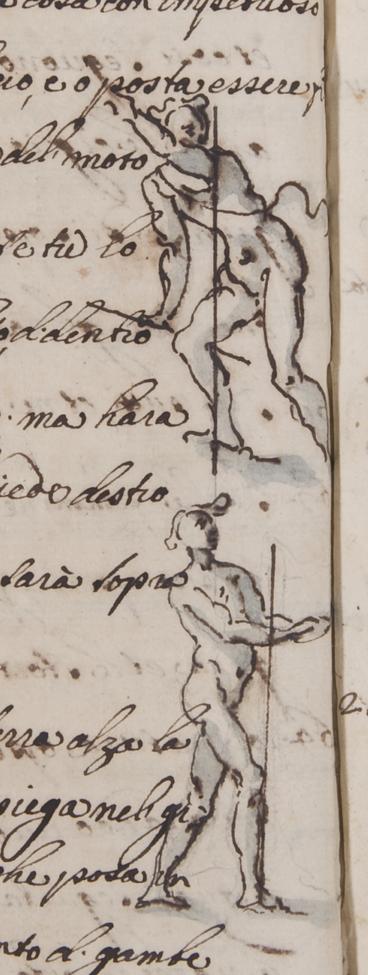 a cosa con impetuoso
e o posta essere
del moto
tu lo
dentro
ma hara
piede destro
sarà sopra
2
terra alza la
piega nel gi
che posa in
nto d. gambe